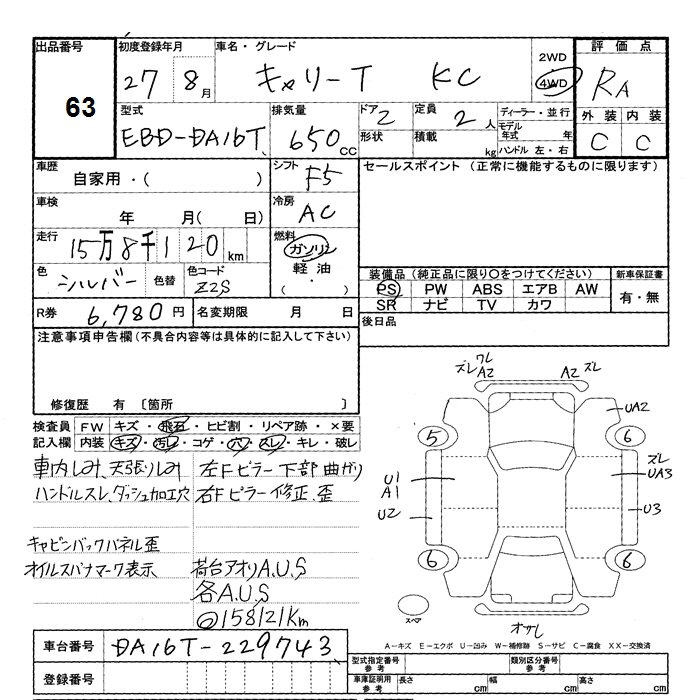 出品番号
63
初度登録年月
27 8月
車名・グレード
キャリーT KC
2WD
4WD
評価点
RA
外装 内装
C C
型式
EBD-DA16T
排気量
650cc
ドア 2
形状
定員 2人
積載 kg
ディーラー・並行
モデル年式 年
ハンドル 左・右
車歴
自家用・( )
シフト
F5
セールスポイント(正常に機能するものに限ります)
車検
年 月( 日)
冷房
AC
走行
15万8千120km
燃料
ガソリン
軽油
( ・ )
色
シルバー
色替
色コード
Z2S
装備品(純正品に限り○をつけてください)
新車保証書
PS PW ABS エアB AW
SR ナビ TV カワ
有・無
R券 6,780円
名変期限 月 日
後日品
注意事項申告欄(不具合内容等は具体的に記入して下さい)
修復歴 有 〔箇所 〕
検査員記入欄
FW キズ・飛石・ヒビ割・リペア跡・×要
内装 キズ・汚レ・コゲ・穴・スレ・キレ・破レ
車内しみ、天張りしみ 左Fピラー下部曲がり
ハンドルスレ、ダッシュ加工穴 右Fピラー修正、歪
キャビンバックパネル歪
オイルスバナマーク表示 荷台アオリA.U.S
各A.U.S
◎158121Km
ズレ ワレ A2
A2 ズレ
UA2
5 6
ズレ
UA3
U1
A1
U2
U3
6 6
スペア
オサレ
A-キズ E-エクボ U-凹み W-補修跡 S-サビ C-腐食 XX-交換済
車台番号 DA16T-229743
登録番号
型式指定番号 参考
類別区分番号 参考
車庫証明用 参考 長さ cm 幅 cm 高さ cm